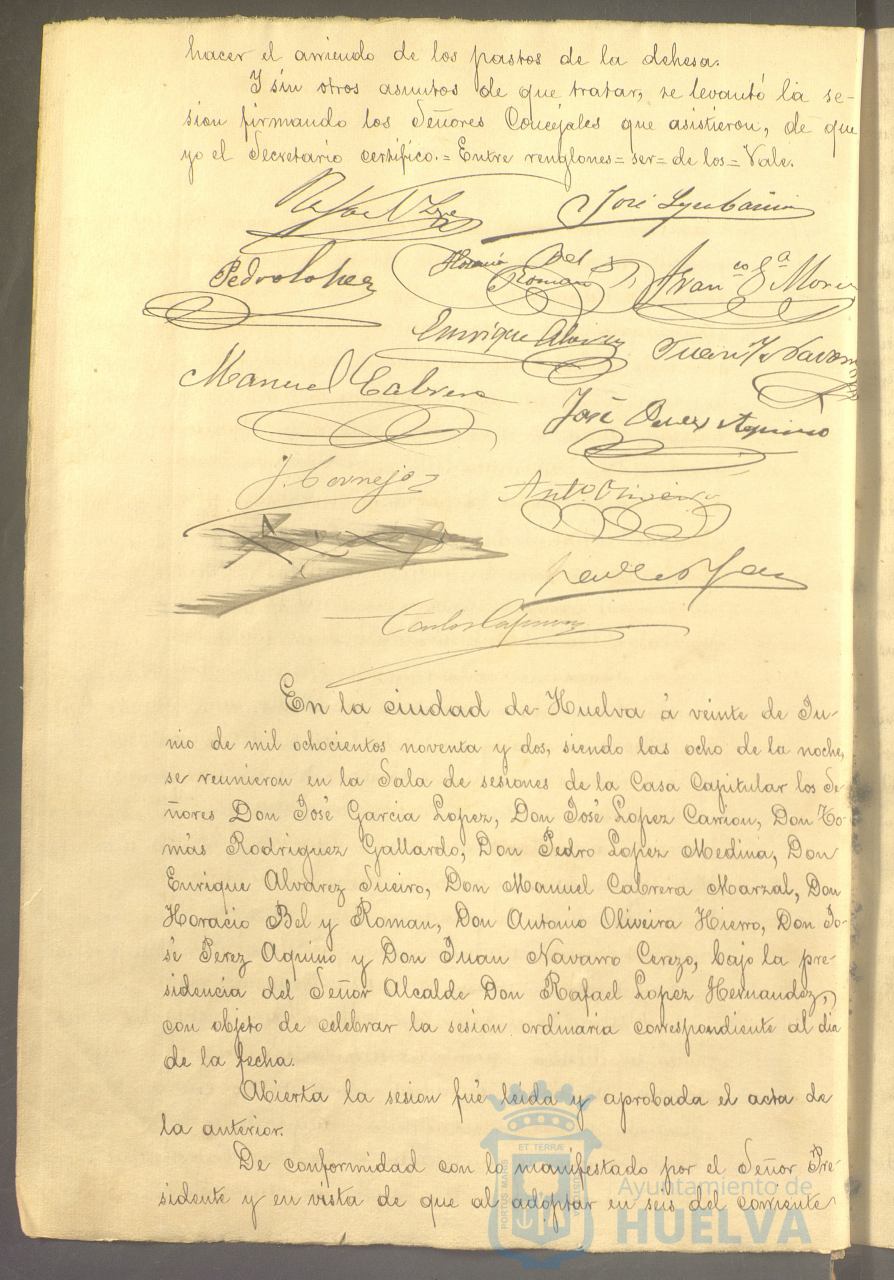 hacer el arriendo de los pastos de la dehesa.
Y sin otros asuntos de que tratar, se levantó la se-
sion firmando los Señores Concejales que asistieron, de que
yo el Secretario certifico.= Entre renglones= ser= de los= Vale.
Pedro Lopez
Horacio Bel y Roman
Enrique Alvarez
Manuel Cabrera
José Perez Aquino
J. Cornejo
Anto. Oliveira
En la ciudad de Huelva á veinte de Ju-
nio de mil ochocientos noventa y dos, siendo las ocho de la noche,
se reunieron en la Sala de sesiones de la Casa Capitular los Se-
ñores Don José Garcia Lopez, Don José Lopez Carrion, Don To-
más Rodriguez Gallardo, Don Pedro Lopez Medina, Don
Enrique Alvarez Sueiro, Don Manuel Cabrera Marzal, Don
Horacio Bel y Roman, Don Antonio Oliveira Hierro, Don Jo-
sé Perez Aquino y Don Juan Navarro Cerezo, bajo la pre-
sidencia del Señor Alcalde Don Rafael Lopez Hernandez,
con objeto de celebrar la sesion ordinaria correspondiente al dia
de la fecha.
Abierta la sesion fué leida y aprobada el acta de
la anterior.
De conformidad con lo manifestado por el Señor Pre-
sidente y en vista de que al adoptar en seis del corriente
ET TERRAE
PORTUS MARIS
Ayuntamiento de
HUELVA